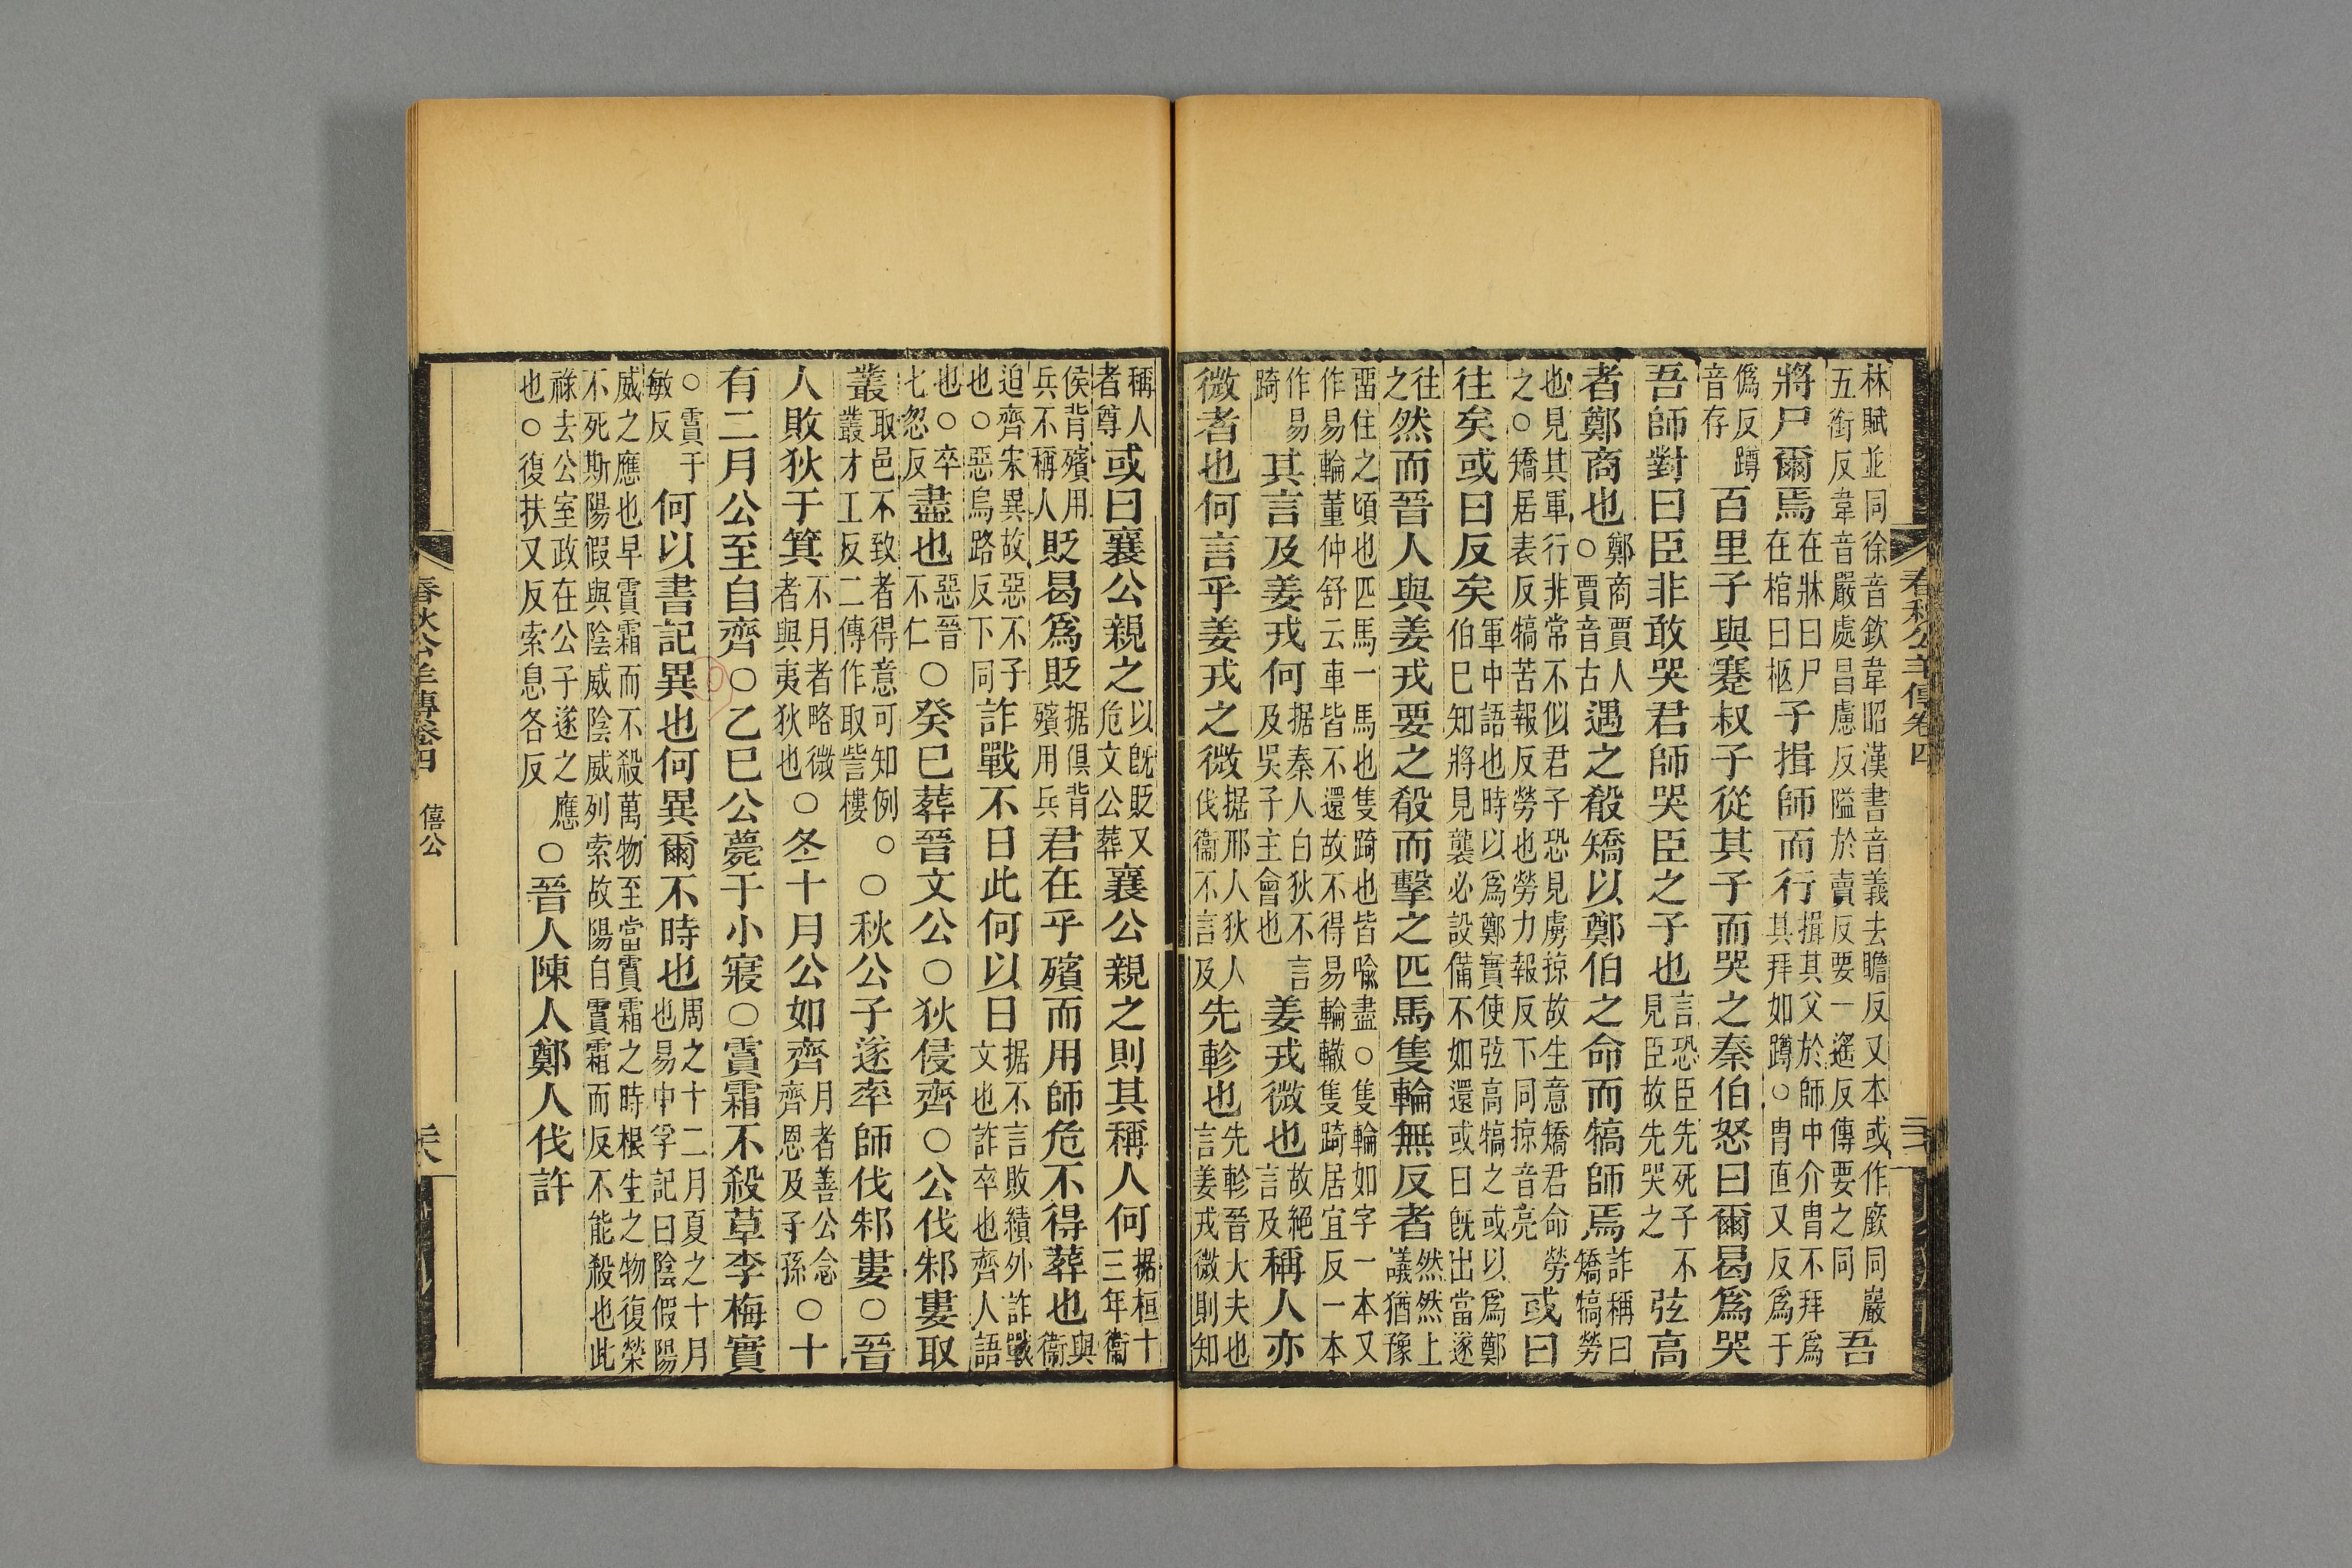 林賦並同徐音欽韋昭漢書音義去瞻反又本或作廞同巖五銜反韋音嚴處昌慮反隘於賣反要一遙反傳要之同吾
將尸爾焉在牀曰尸在棺曰柩子揖師而行揖其父於師中介胄不拜爲其拜如蹲○胄直又反爲于
僞反蹲音存百里子與蹇叔子從其子而哭之秦伯怒曰爾曷爲哭
吾師對曰臣非敢哭君師哭臣之子也言恐臣先死子不見臣故先哭之弦高
者鄭商也鄭商賈人○賈音古遇之殽矯以鄭伯之命而犒師焉詐稱曰矯犒勞
也見其軍行非常不似君子恐見虜掠故生意矯君命勞之○矯居表反犒苦報反勞也勞力報反下同掠音亮或曰
往矣或曰反矣軍中語也時以爲鄭實使弦高犒之或以爲鄭伯巳知將見襲必設備不如還或曰旣出當遂
往之然而晉人與姜戎要之殽而擊之匹馬隻輪無反者然然上議猶豫
畱住之頃也匹馬一馬也隻踦也皆喩盡○隻輪如字一本又作易輪董仲舒云車皆不還故不得易輪轍隻踦居宜反一本
作易踦其言及姜戎何据秦人白狄不言及吳子主會也姜戎微也故絕言及稱人亦
微者也何言乎姜戎之微据邢人狄人伐衞不言及先軫也先軫晉大夫也言姜戎微則知
稱人者尊或曰襄公親之以旣貶又危文公葬襄公親之則其稱人何据桓十三年衞
侯背殯用兵不稱人貶曷爲貶据俱背殯用兵君在乎殯而用師危不得葬也與衞
迫齊宋異故惡不子也○惡烏路反下同詐戰不日此何以日据不言敗績外詐戰文也詐卒也齊人語
也○卒七忽反盡也惡晉不仁○癸巳葬晉文公○狄侵齊○公伐邾婁取
叢取邑不致者得意可知例○叢才工反二傳作取訾樓○秋公子遂率師伐邾婁○晉
人敗狄于箕不月者略微者與夷狄也○冬十月公如齊月者善公念齊恩及子孫○十
有二月公至自齊○乙巳公薨于小寢○霣霜不殺草李梅實
○霣于敏反何以書記異也何異爾不時也周之十二月夏之十月也易中孚記曰陰假陽
威之應也早霣霜而不殺萬物至當霣霜之時根生之物復榮不死斯陽假與陰威陰威列索故陽自霣霜而反不能殺也此
祿去公室政在公子遂之應也○復扶又反索息各反○晉人陳人鄭人伐許
春秋公羊傳卷四
僖公
春秋公羊傳卷四